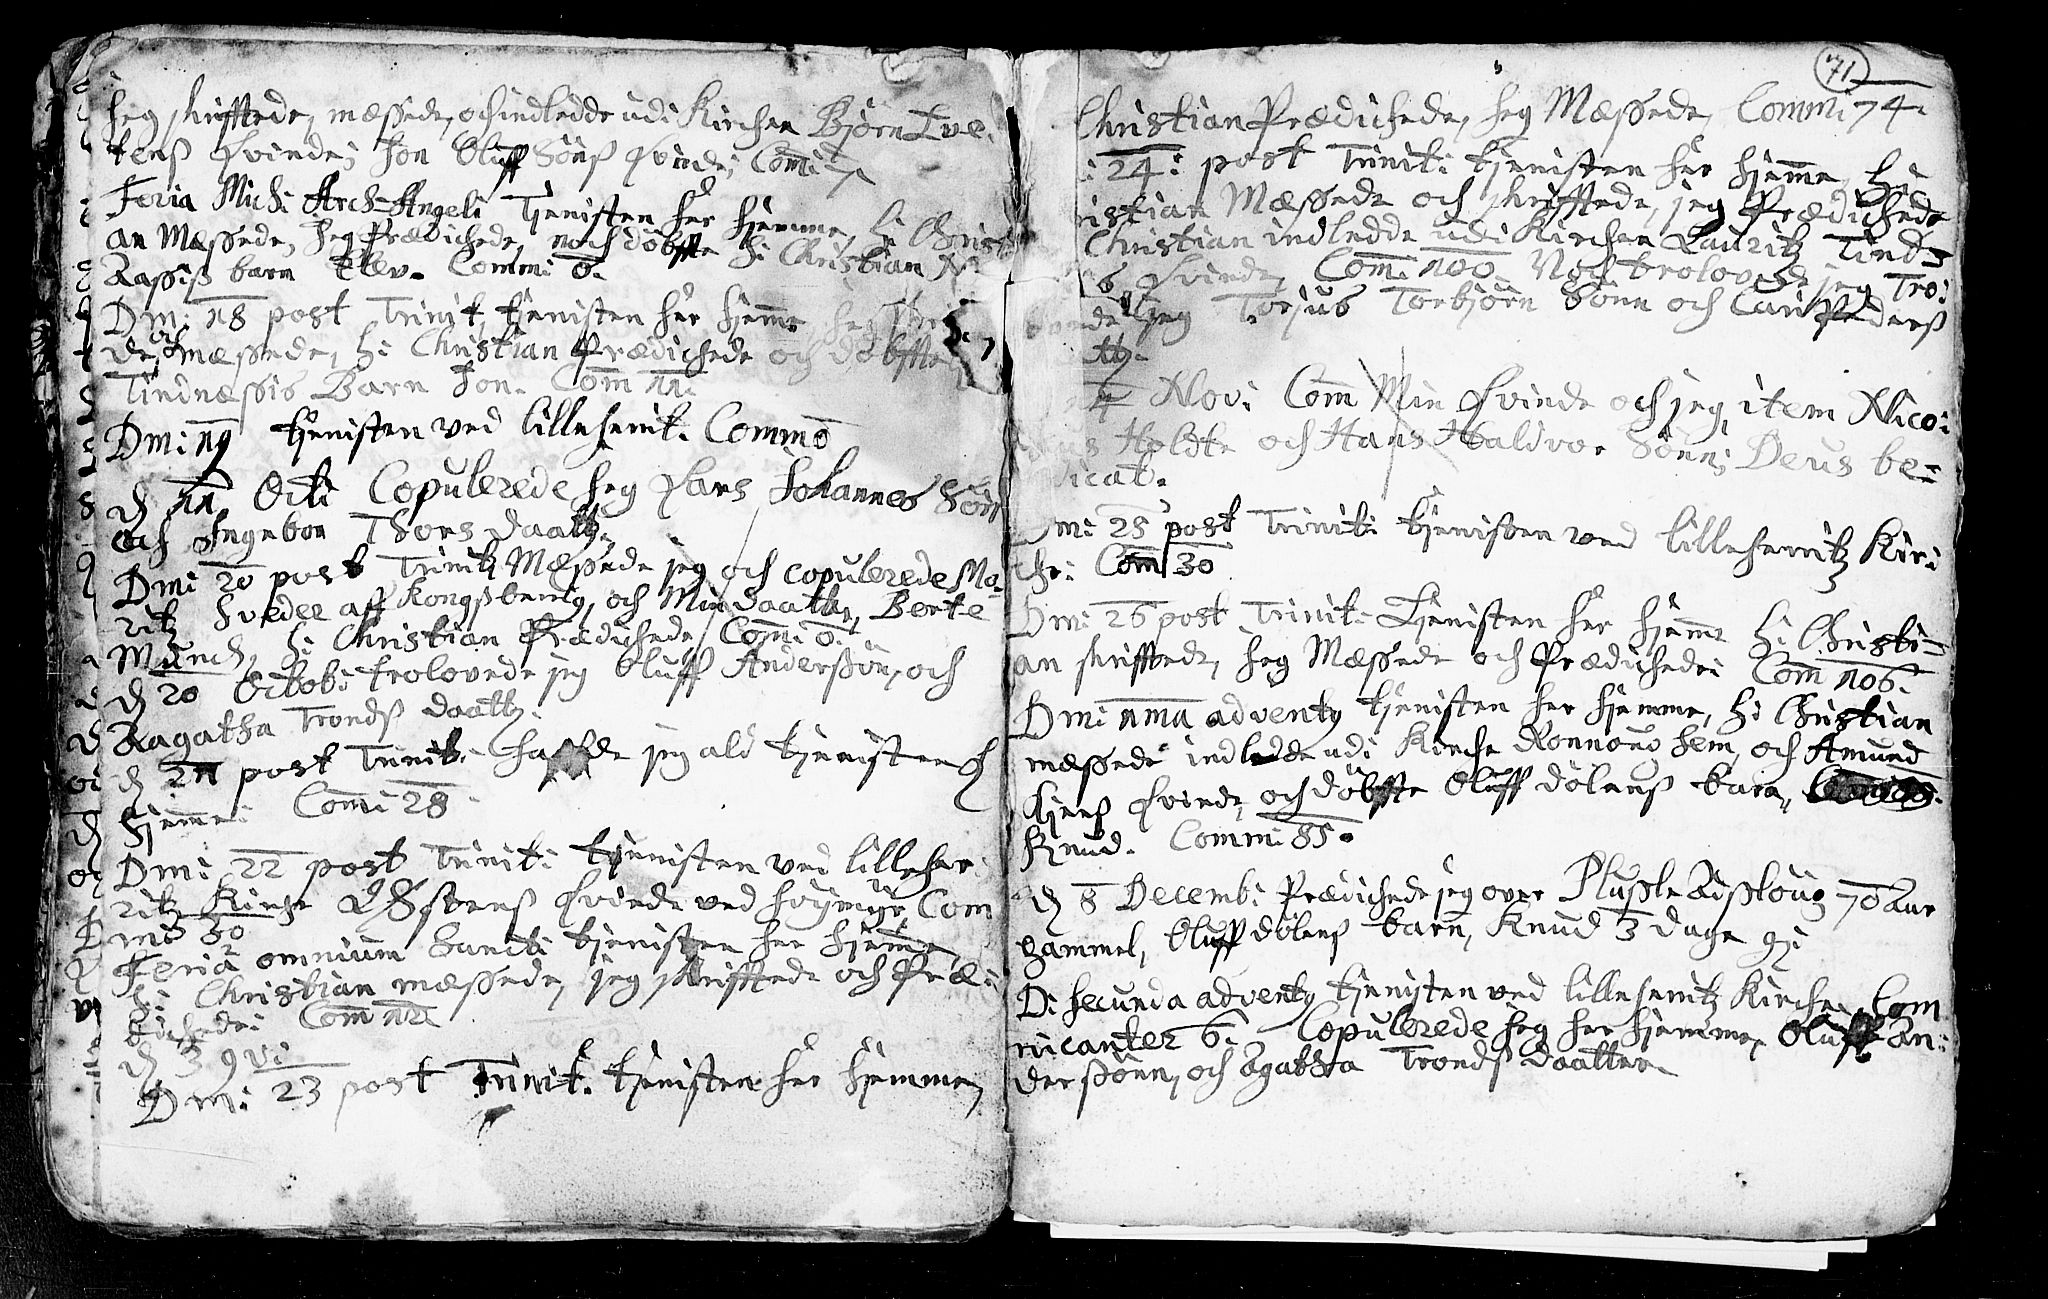 Jeg skrifftede, mæssede, och indledde udi Kirchen Biørn Tve¸
tens Qvinde; Jon Oluff Söns Qvinde; Com̄i 7
Feria Michi Arch-Angeli Tienisten her hiemme, H: Christi
an Mæssede, Jeg Prædichede, noch döbfte H: Christian
Aassis barn Elev. Commi 0.
Dmi: 18 post Trinit, tienisten her hjem̄e, Jeg
de, och mæssede, H: Christian Prædichede och döbfte
Tindnæssis Barn Jon. Com̄ 111.
Dmi 19 tienisten ved lilleherrit. Comm 0
D 11 Octi Copulerede Jeg Lars Johannes Sön
och Ingebor Thors daatt.
Dmi 20 post Trinit, Mæssede jeg och copulerede Mo¸
ritz Sveder aff Kongsberig, och Min daatter, Berte
Munch, H: Christian Prædichede, Com̄i 0.
D 20 Octob: trolovede jeg Oluff Andersön, och
Aagatha Tronds daatt.
D 21 post Trinit. hafde jeg ald tienisten
hiem̄e: Com̄i 28
Dmi 22 post Trinit: tienisten ved lilleher:
ritz Kirche Østens Qvinde ved Com
30
Feria omnium Sancti tienisten her hjem̄e,
H: Christian mæssede, jeg skrifftede och Præ:
dichede: Com̄ 112
D 3 9vi
Dmi: 23 post Trinit. tienisten her hiemme,
71
Christian Prædichede, Jeg Mæssede, Commi 74.
: 24: post Trinit: tienisten her hjem̄e, H:
ristian Mæssede och skrifftede, jeg Prædichede
Christian indledde udi Kirchen Lauritz Tind¸
s Qvinde, Com̄i 100. Noch trolovede jeg Tro:
jeg Torjus Torbjörn Sönn och Cari Peders
tt.
Novi: Com̄ Min Qvinde och jeg, item Nico:
us Holste och Hans Haldvor Sönn; Deus be¸
icat.
Dmi: 25 post Trinit: tienisten ved lilleherritz Kir:
che: Com 30
Dmi 26 post Trinit: Tienisten her hjem̄e H: Christi¸
an skrifftede, Jeg Mæssede och Prædichede: Com̄ 106.
Dmi 1ma adventy tienisten her hiemme, H: Christian
mæssede indledde udi Kirche Ronnous hem, och Amund
Liens Qvinde, och döbfte Oluff dölens barn,
Knud. Commi 85.
D 8 Decembi Prædichede jeg over Plusle Aasloug 70 Aar
gammel, Oluff dölens barn, Knud 3 dage 9:
D: Secunda adventy tienisten ved lilleherritz Kirche, Com
nicanter 6: Copulerede Jeg her hiemme, Oluff An:
dersönn, och Agatha Tronds daatter.